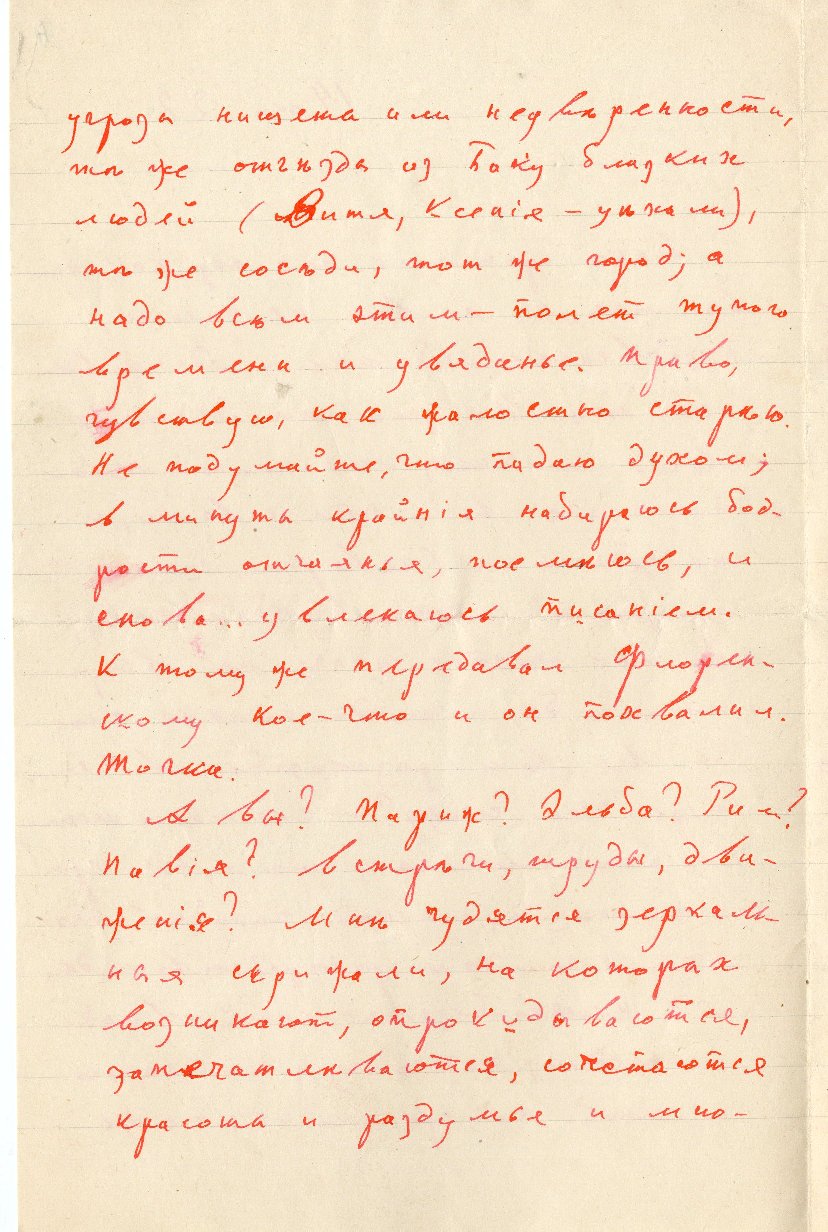 угрозы нищеты или недовѣренности,
тѣ же отъѣзды из Баку близких
людей (Витя, Ксенія – уѣхали),
тѣ же сосѣди, тот же город; а
надо всѣм этим – полет тупого
времени и увяданье. Право,
чувствую, как жалостно старѣю.
Не подумайте, что падаю духом;
в минуты крайнія набираюсь бод-
рости отчаянья, посмѣюсь, и
снова... увлекаюсь писаніем.
К тому же передавал Флорен-
скому кое-что и он похвалил.
Точка.
А вы? Париж? Эльба? Рим?
Павія? Встрѣчи, труды, дви-
женія? Мнѣ чудятся зеркаль-
ныя скрижали, на которых
возникают, опрокидываются,
запечатлѣваются, сочетаются
красоты и раздумья и мно-